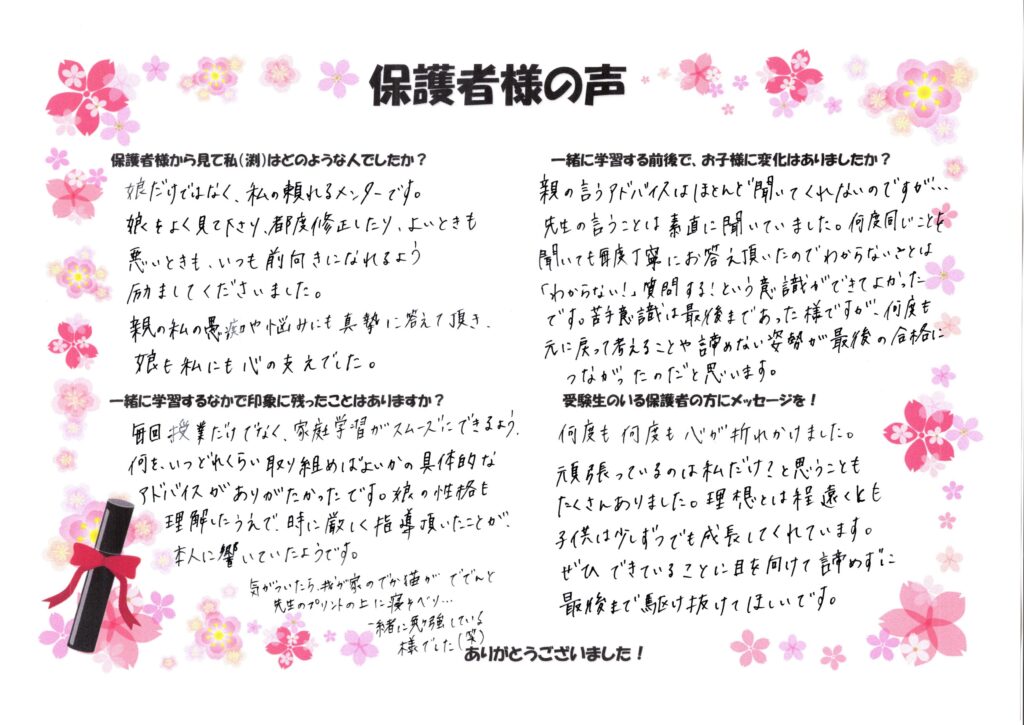 保護者様の声
保護者様から見て私(渕)はどのような人でしたか?
娘だけではなく、私の頼れるメンターです。
娘をよく見て下さり、都度修正したり、よいときも
悪いときも、いつも前向きになれるよう
励ましてくださいました。
親の私の愚痴や悩みにも真摯に答えて頂き、
娘も私にも心の支えでした。
一緒に学習するなかで印象に残ったことはありますか?
毎回授業だけでなく、家庭学習がスムーズにできるよう、
何を、いつどれくらい取り組めばよいかの具体的な
アドバイスがありがたかったです。娘の性格も
理解したうえで、時に厳しく指導頂いたことが、
本人に響いていたようです。
気がついたら、我が家のでか猫がででんと
先生のプリントの上に寝そべり…
一緒に勉強している
様でした(笑)
一緒に学習する前後で、お子様に変化はありましたか?
親の言うアドバイスはほとんど聞いてくれないのですが…
先生の言うことは素直に聞いていました。何度同じことを
聞いても毎度丁寧にお答え頂いたのでわからないことは
「わからない!」質問する!という意識ができてよかった
です。苦手意識は最後まであった様ですが、何度も
元に戻って考えることや諦めない姿勢が最後の合格に
つながったのだと思います。
受験生のいる保護者の方にメッセージを!
何度も何度も心が折れかけました。
頑張っているのは私だけ?と思うことも
たくさんありました。理想とは程遠くとも
子供は少しずつでも成長してくれています。
ぜひできていることに目を向けて諦めずに
最後まで駆け抜けてほしいです。
ありがとうございました!